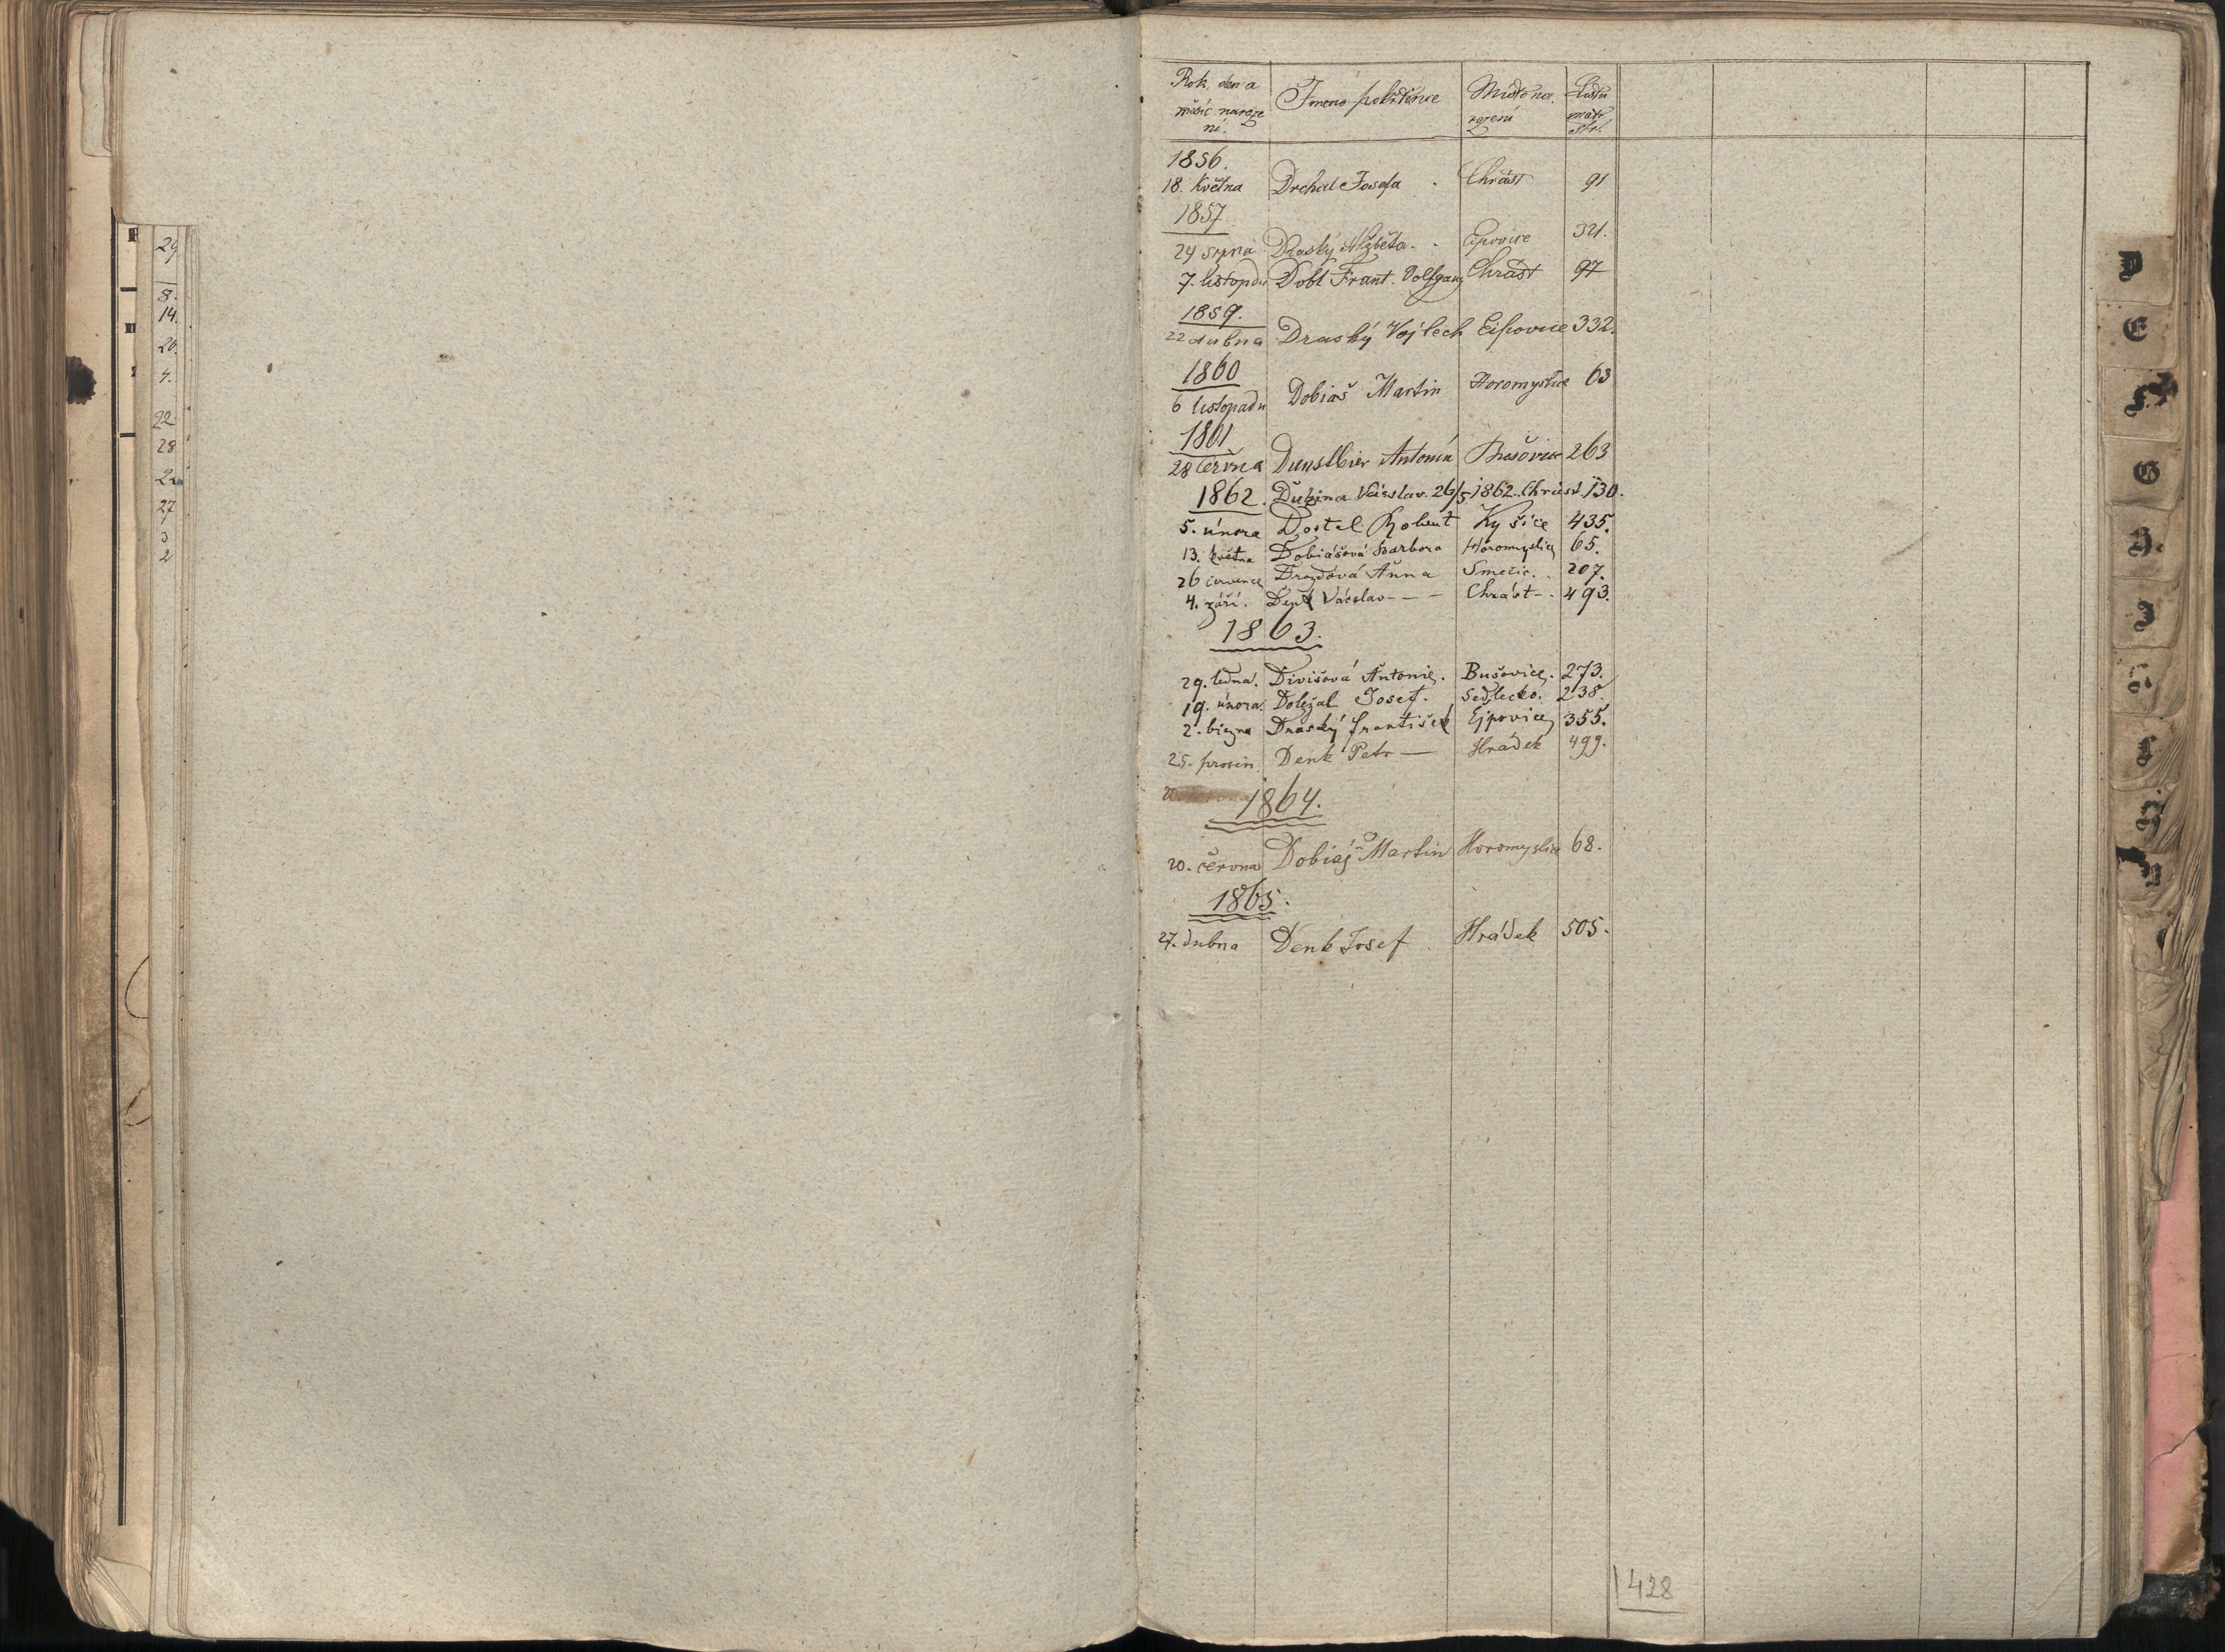 29
8.
14.
20.
4.
22
28
22
27
3
2
Rok, den a měsíc naroze ní. Jmeno pokřtěnce Místo na rození Listu matr. str.
1856.
18. Května Drchal Josefa . Chrást 91
1857
24 Srpna Draský Alžběta . . Eipovice 321.
7. listopadu Dobl Frant. Volfgang Chrást 97
1859.
22 dubna Draský Vojtech Eipovice 332.
1860
6 listopadu Dobiaš Martin Horomyslice 63
1861
28 Června Dunstbier Antonín Bušovice 263
1862. Dubina Václav. 26/5 1862. Chrást. 130.
5. února Dostal Robert Kyšice 435.
13. května Dobiášová Barbora Horomyslice 65.
26 července Drazdová Anna Smečic. 207.
4. září. Denk Václav - - - Chrást - . 493.
1863.
29. ledna. Divišová Antonie. Bušovice. 273.
19. února. Doležal Josef. Sedlecko. 238.
2. března Draský František Ejpovice 355.
25. prosin. Denk Petr — Hrádek 499.
1864.
20. června Dobiáš Martin Horomyslice 68.
1865.
27. dubna Denk Josef . Hrádek 505.
428
D
E
F
G
H.
J
L